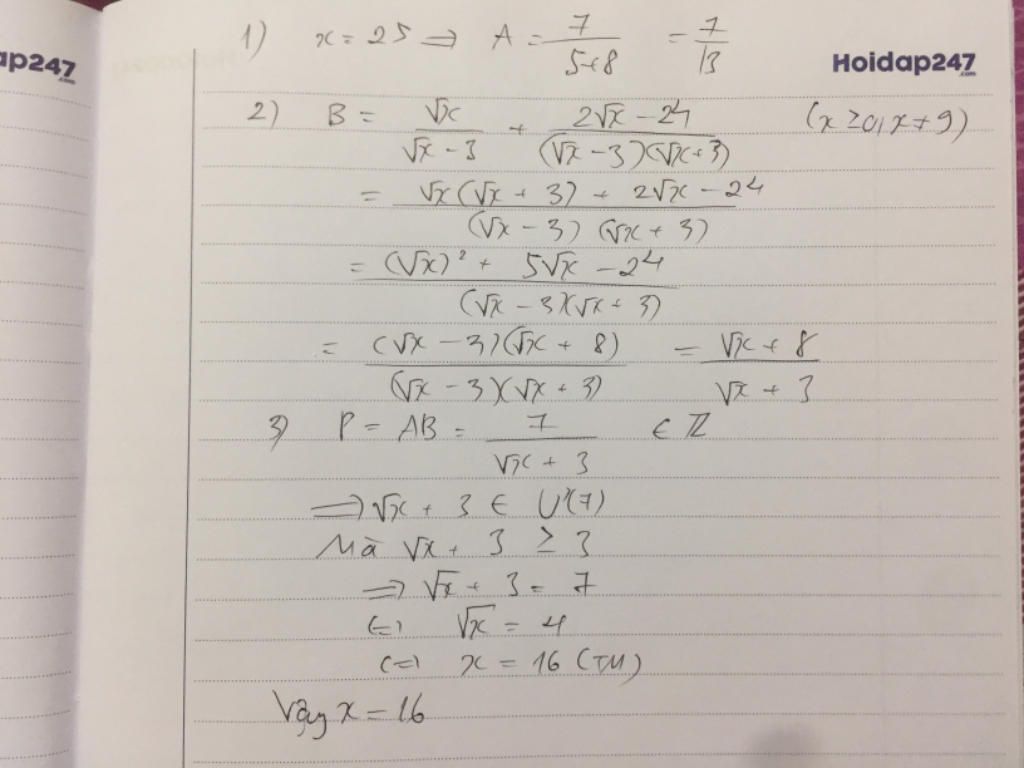 ap247
.com
Hoidap247
.com
1) x = 25 ⟹ A = 7/(5+8) = 7/13
2) B = √x/(√x - 3) + (2√x - 24)/((√x - 3)(√x + 3)) (x ≥ 0, x ≠ 9)
= (√x(√x + 3) + 2√x - 24)/((√x - 3)(√x + 3))
= ((√x)² + 5√x - 24)/((√x - 3)(√x + 3))
= ((√x - 3)(√x + 8))/((√x - 3)(√x + 3)) = (√x + 8)/(√x + 3)
3) P = AB = 7/(√x + 3) ∈ ℤ
⟹ √x + 3 ∈ Ư(7)
Mà √x + 3 ≥ 3
⟹ √x + 3 = 7
⟺ √x = 4
⟺ x = 16 (TM)
Vậy x = 16